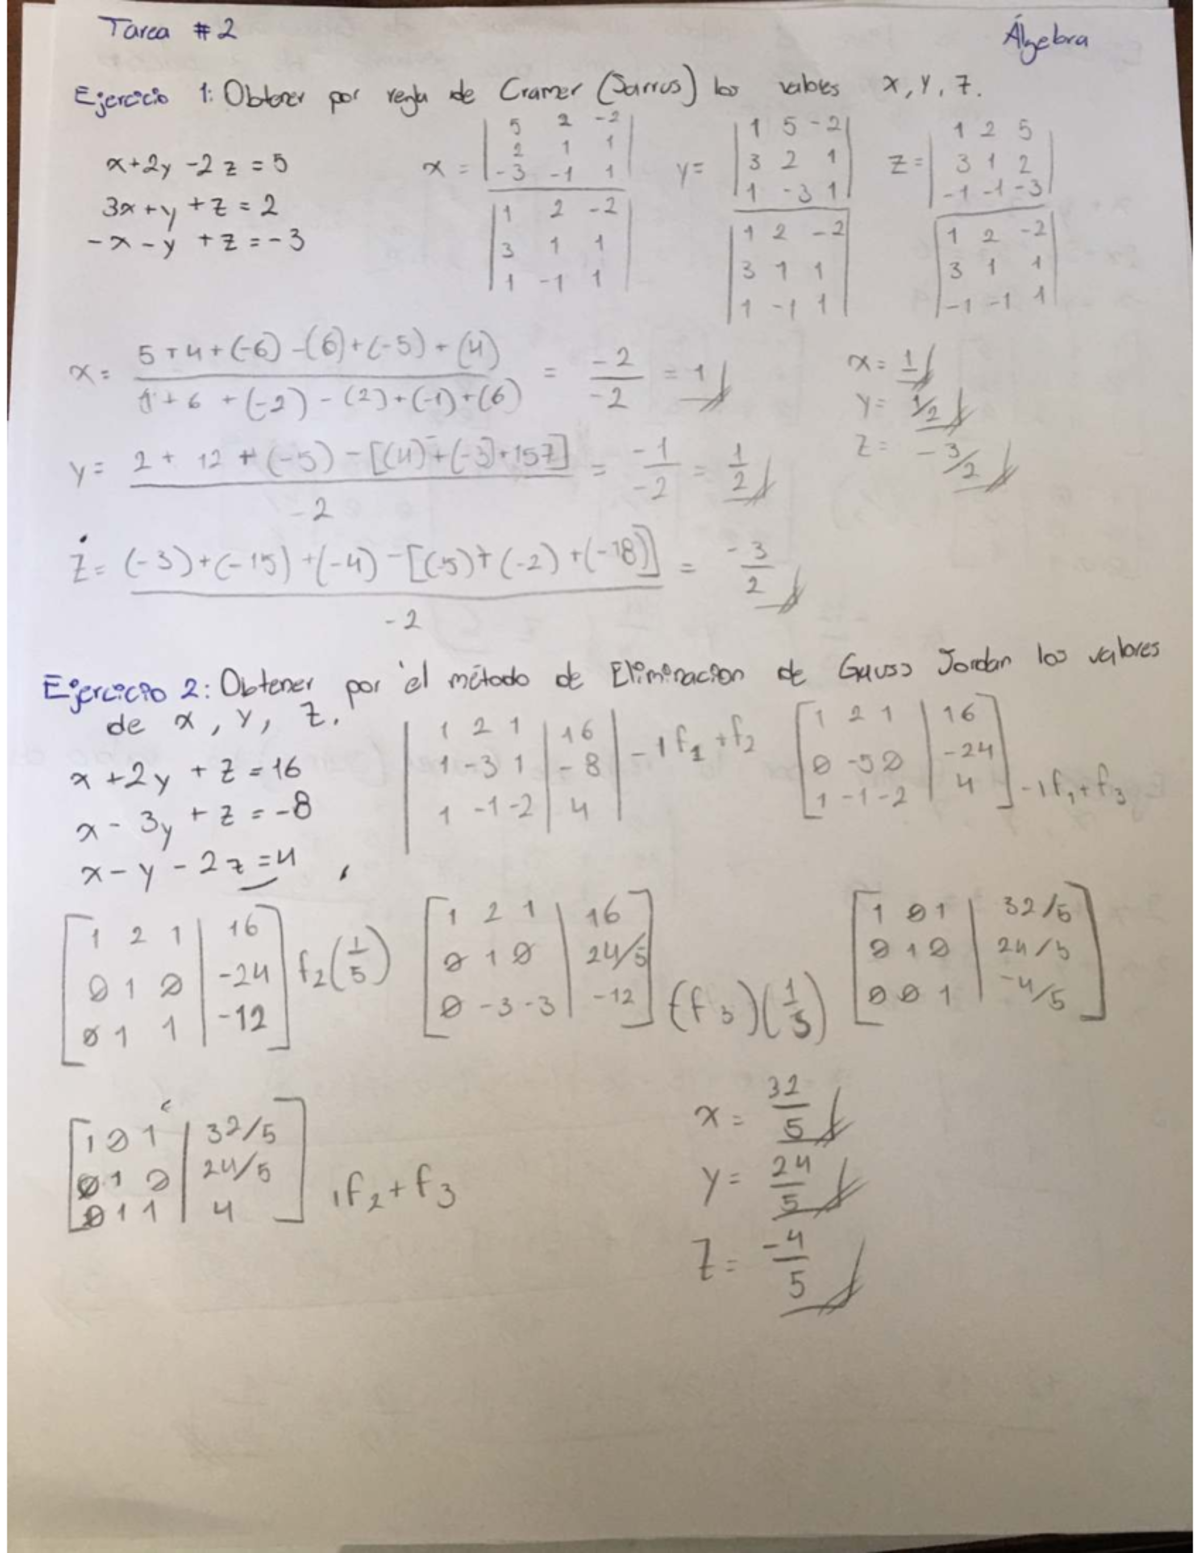 Tarea #2
Álgebra
Ejercicio 1: Obtener por regla de Cramer (Sarrus) los valores x, y, z.
x+2y-2z=5
3x+y+z=2
-x-y+z=-3
x = | 5 2 -2 |
| 2 1 1 |
| -3 -1 1 |
| 1 2 -2 |
| 3 1 1 |
| 1 -1 1 |
y= | 1 5 -2 |
| 3 2 1 |
| 1 -3 1 |
| 1 2 -2 |
| 3 1 1 |
| 1 -1 1 |
z= | 1 2 5 |
| 3 1 2 |
| -1 -1 -3 |
| 1 2 -2 |
| 3 1 1 |
| -1 -1 1 |
x= 5+4+(-6)-(6)+(-5)+(4) = -2 = 1
1+6+(-2)-(2)+(-1)+(6) -2
y= 2+12+(-5)-[(4)+(-3)+15] = -1 = 1
-2 -2 2
z= (-3)+(-15)+(-4)-[(-5)+(-2)+(-18)] = -3
-2 2
x= 1
y= 1/2
z= -3/2
Ejercicio 2: Obtener por el método de Eliminacion de Gauss Jordan los valores
de x, y, z.
x+2y+z=16
x-3y+z=-8
x-y-2z=4
| 1 2 1 | 16 |
| 1 -3 1 | -8 | -1f1+f2
| 1 -1 -2 | 4 |
[ 1 2 1 | 16 ]
[ 0 -5 0 | -24 ]
[ 1 -1 -2 | 4 ] -1f1+f3
[ 1 2 1 | 16 ]
[ 0 1 0 | -24 ] f2(1/5)
[ 0 1 1 | -12 ]
[ 1 2 1 | 16 ]
[ 0 1 0 | 24/5 ]
[ 0 -3 -3 | -12 ] (f3)(1/3)
[ 1 0 1 | 32/5 ]
[ 0 1 0 | 24/5 ]
[ 0 0 1 | -4/5 ]
[ 1 0 1 | 32/5 ]
[ 0 1 0 | 24/5 ]
[ 0 1 1 | 4 ] 1f2+f3
x= 32/5
y= 24/5
z= -4/5